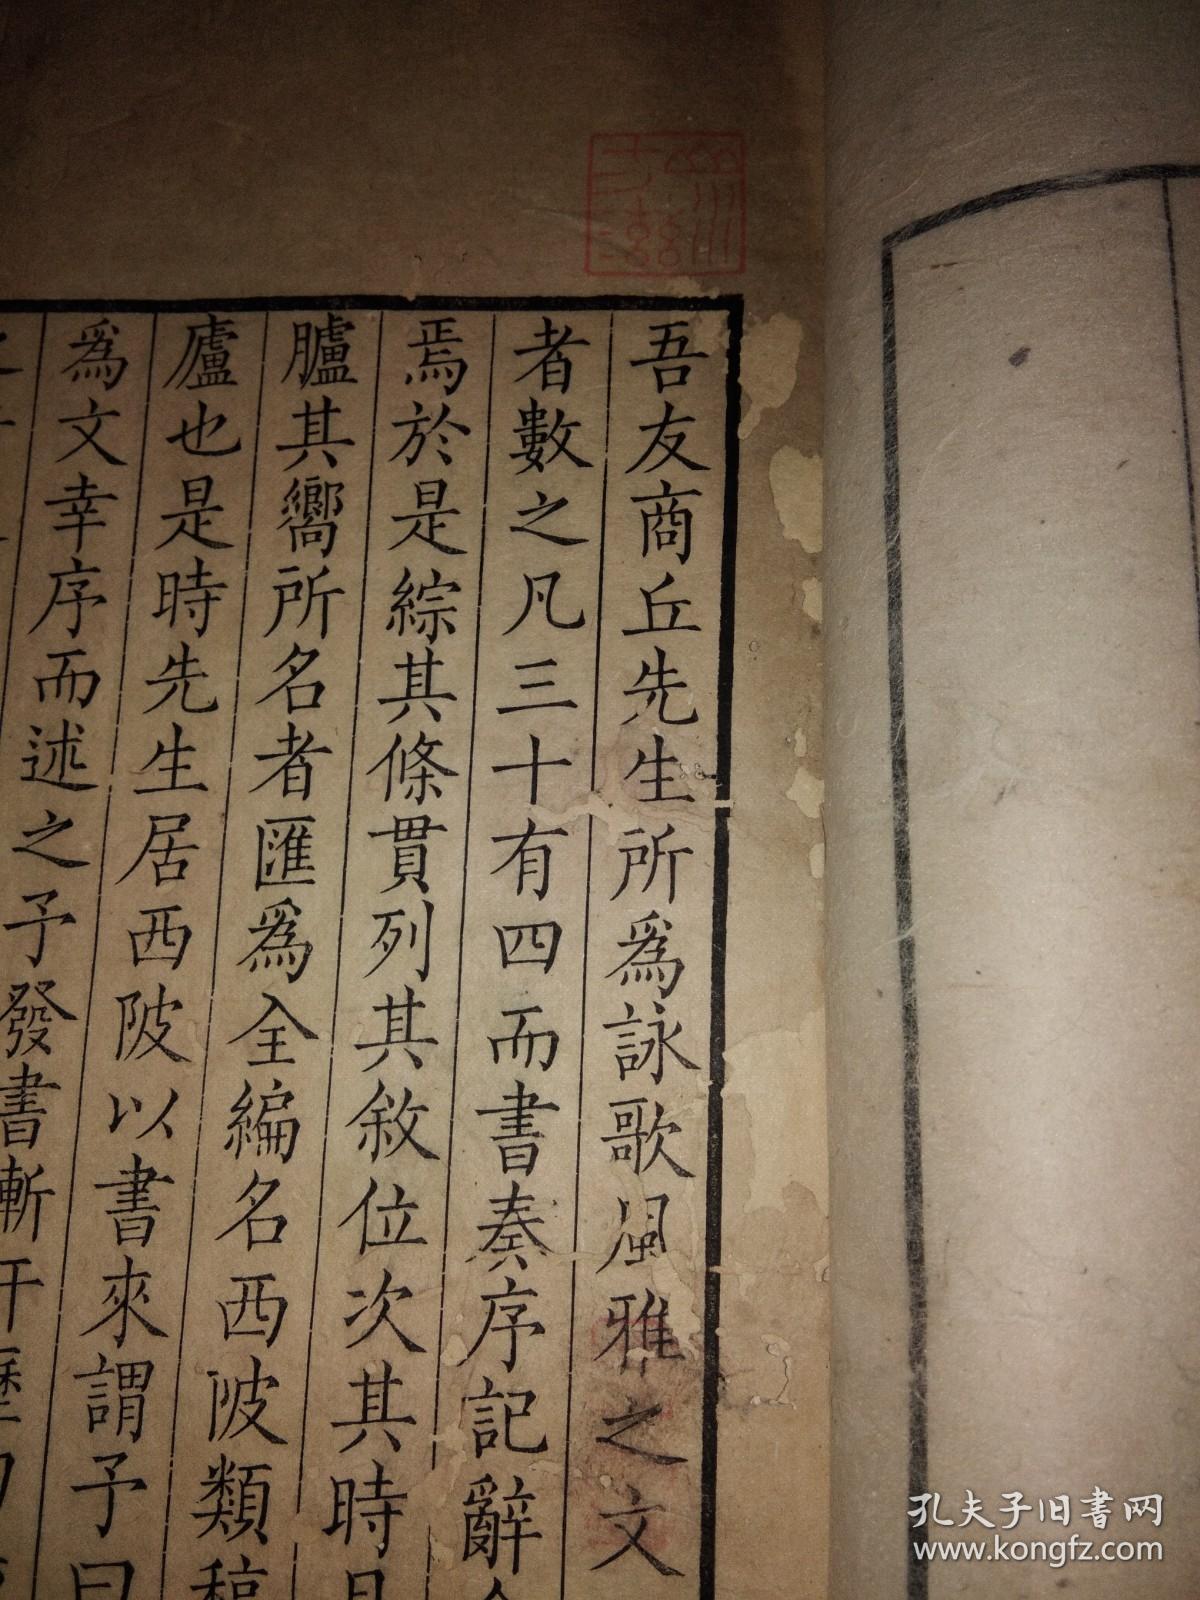 吾友商丘先生所爲詠歌風雅之文
者數之凡三十有四而書奏序記辭
焉於是綜其條貫列其敘位次其時
臚其嚮所名者匯爲全編名西陂類稿
廬也是時先生居西陂以書來謂予曰
爲文幸序而述之予發書斬
孔夫子旧书网
www.kongfz.com